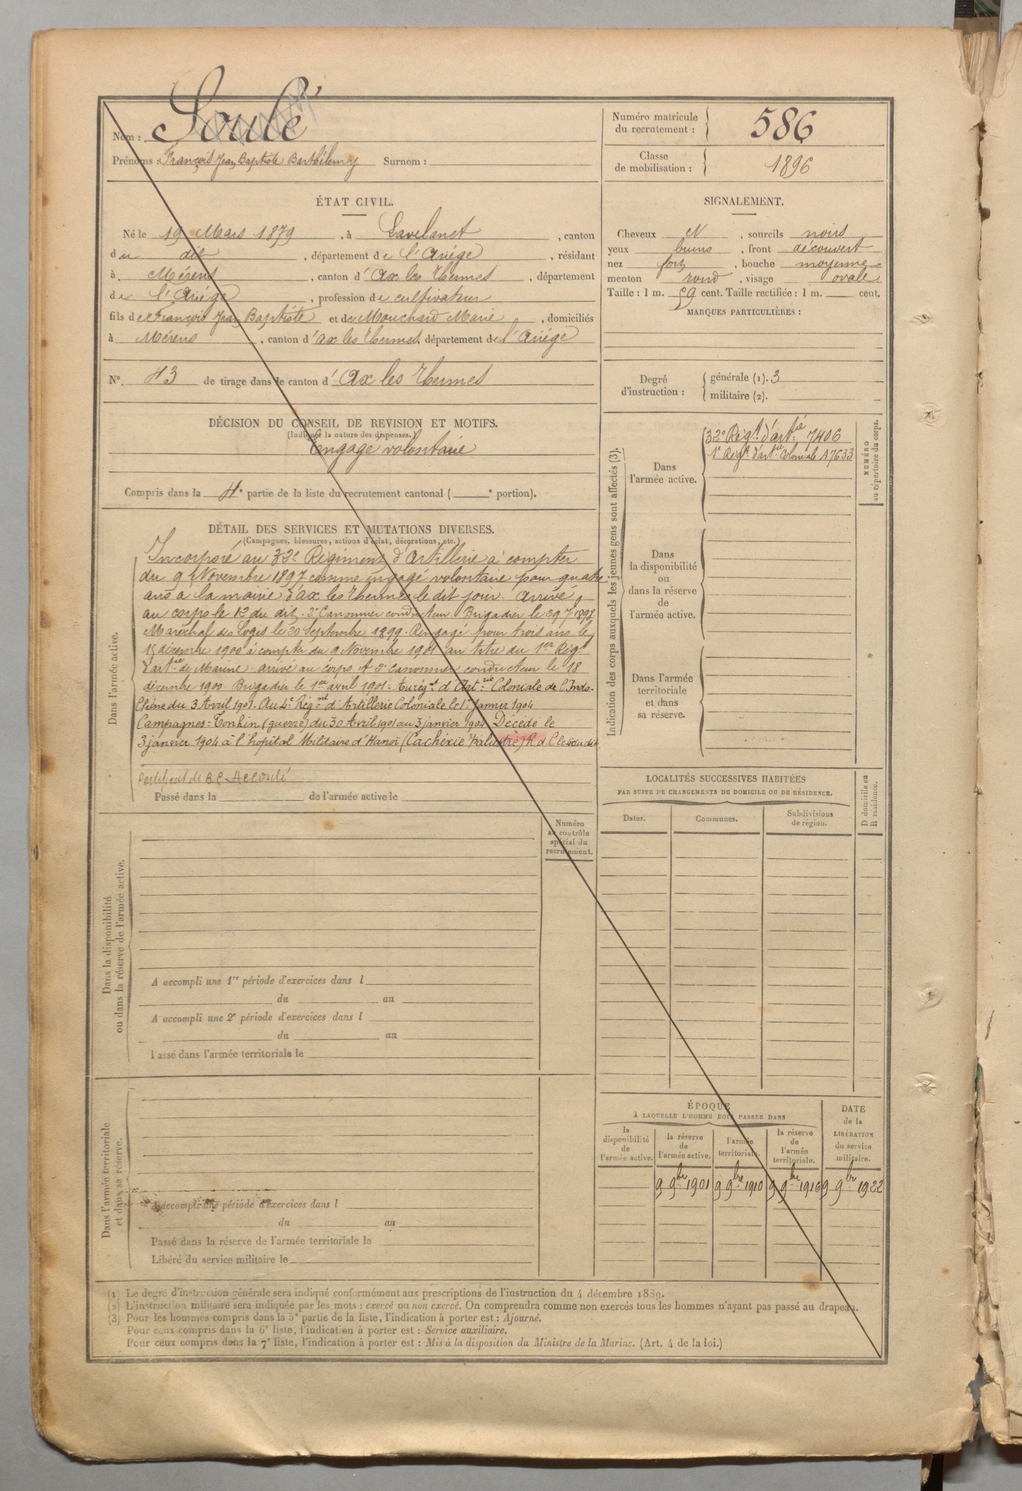 Nom : Soulé
Prénoms : François Jean Baptiste Barthélemy Surnom :
Numéro matricule du recrutement : 586
Classe de mobilisation : 1896
ÉTAT CIVIL.
Né le 19 Mars 1879, à Lavelanet, canton
du dit, département de l'Ariége, résidant
à Mérens, canton d'Ax les Thermes, département
de l'Ariége, profession de cultivateur
fils de François Jean Baptiste et de Mouchard Marie, domiciliés
à Mérens, canton d'ax les Thermes, département de l'Ariége
N° 43 de tirage dans le canton d'Ax les Thermes
SIGNALEMENT.
Cheveux N, sourcils noirs
yeux bruns, front découvert
nez fort, bouche moyenne
menton rond, visage ovale
Taille : 1 m. 59 cent. Taille rectifiée : 1 m. cent.
MARQUES PARTICULIÈRES :
Degré d'instruction : générale (1). 3
militaire (2).
DÉCISION DU CONSEIL DE REVISION ET MOTIFS.
(Indiquer la nature des dispenses.)
Engagé volontaire
Compris dans la 4e partie de la liste du recrutement cantonal ( e portion).
DÉTAIL DES SERVICES ET MUTATIONS DIVERSES.
(Campagnes, blessures, actions d'éclat, décorations, etc.)
Dans l'armée active.
Incorporé au 32e Régiment d'Artillerie à compter
du 9 Novembre 1897 comme engagé volontaire pour quatre
ans à la mairie d'ax les Thermes le dit jour. Arrivé
au corps le 12 du dit. 2e Canonnier conducteur Brigadier le 29 7 1898
Maréchal des logis le 20 Septembre 1899. Rengagé pour trois ans le
15 décembre 1900 à compter du 9 Novembre 1901 au titre du 1er Rég.
d'artie de Marine. arrivé au corps et 2e canonnier conducteur le 18
décembre 1900 Brigadier le 1er avril 1901. Au régt d'Artie Coloniale de l'Indo-
Chine du 3 Avril 1901. Au 4e Régent d'Artillerie Coloniale le 1er Janvier 1904
Campagnes : Tonkin (guerre) du 30 Avril 1901 au 3 janvier 1904 Décédé le
3 janvier 1904 à l'hopital Militaire d'Hanoï (Cachexie palustre)
Certificat de B.C. Accordé
Passé dans la de l'armée active le
Indication des corps auxquels les jeunes gens sont affectés (3).
NUMÉRO au répertoire du corps.
Dans l'armée active.
32e Régt d'artie 7406
1er Régt d'artie Coloniale A7633
Dans la disponibilité ou dans la réserve de l'armée active.
Dans l'armée territoriale et dans sa réserve.
LOCALITÉS SUCCESSIVES HABITÉES
PAR SUITE DE CHANGEMENTS DE DOMICILE OU DE RÉSIDENCE.
Dates. Communes. Subdivisions de région. D domicile ou R résidence.
Numéro au contrôle spécial du recrutement.
Dans la disponibilité ou dans la réserve de l'armée active.
A accompli une 1re période d'exercices dans l
du au
A accompli une 2e période d'exercices dans l
du au
Passé dans l'armée territoriale le
Dans l'armée territoriale et dans sa réserve.
A accompli une période d'exercices dans l
du au
Passé dans la réserve de l'armée territoriale le
Libéré du service militaire le
ÉPOQUE
À LAQUELLE L'HOMME DOIT PASSER DANS
la disponibilité de l'armée active. la réserve de l'armée active. l'armée territoriale. la réserve de l'armée territoriale. DATE de la LIBÉRATION du service militaire.
9 9bre 1901 9 9bre 1910 9 9bre 1916 9 9bre 1922
(1) Le degré d'instruction générale sera indiqué conformément aux prescriptions de l'instruction du 4 décembre 1889.
(2) L'instruction militaire sera indiquée par les mots : exercé ou non exercé. On comprendra comme non exercés tous les hommes n'ayant pas passé au drapeau.
(3) Pour les hommes compris dans la 5e partie de la liste, l'indication à porter est : Ajourné.
Pour ceux compris dans la 6e liste, l'indication à porter est : Service auxiliaire.
Pour ceux compris dans la 7e liste, l'indication à porter est : Mis à la disposition du Ministre de la Marine. (Art. 4 de la loi.)